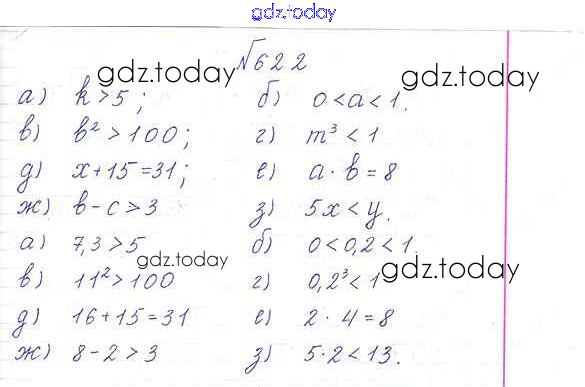 gdz.today
№622
gdz.today
gdz.today
а) k>5; б) 0<a<1.
в) b²>100; г) m³<1
д) x+15=31; е) a·b=8
ж) b-c>3 з) 5x<y.
а) 7,3>5 б) 0<0,2<1.
gdz.today
gdz.today
в) 11²>100 г) 0,2³<1
д) 16+15=31 е) 2·4=8
ж) 8-2>3 з) 5·2<13.